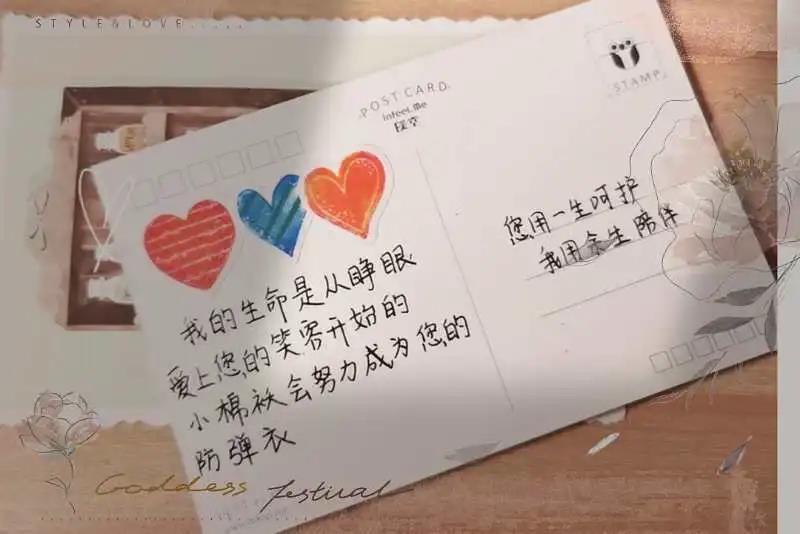 STYLE&LOVE.....
POST CARD
InFeeL.Me
STAMP
您用一生呵护
我用余生陪伴
我的生命是从睁眼
爱上您的笑容开始的
小棉袄会努力成为您的
防弹衣
Goddess Festival